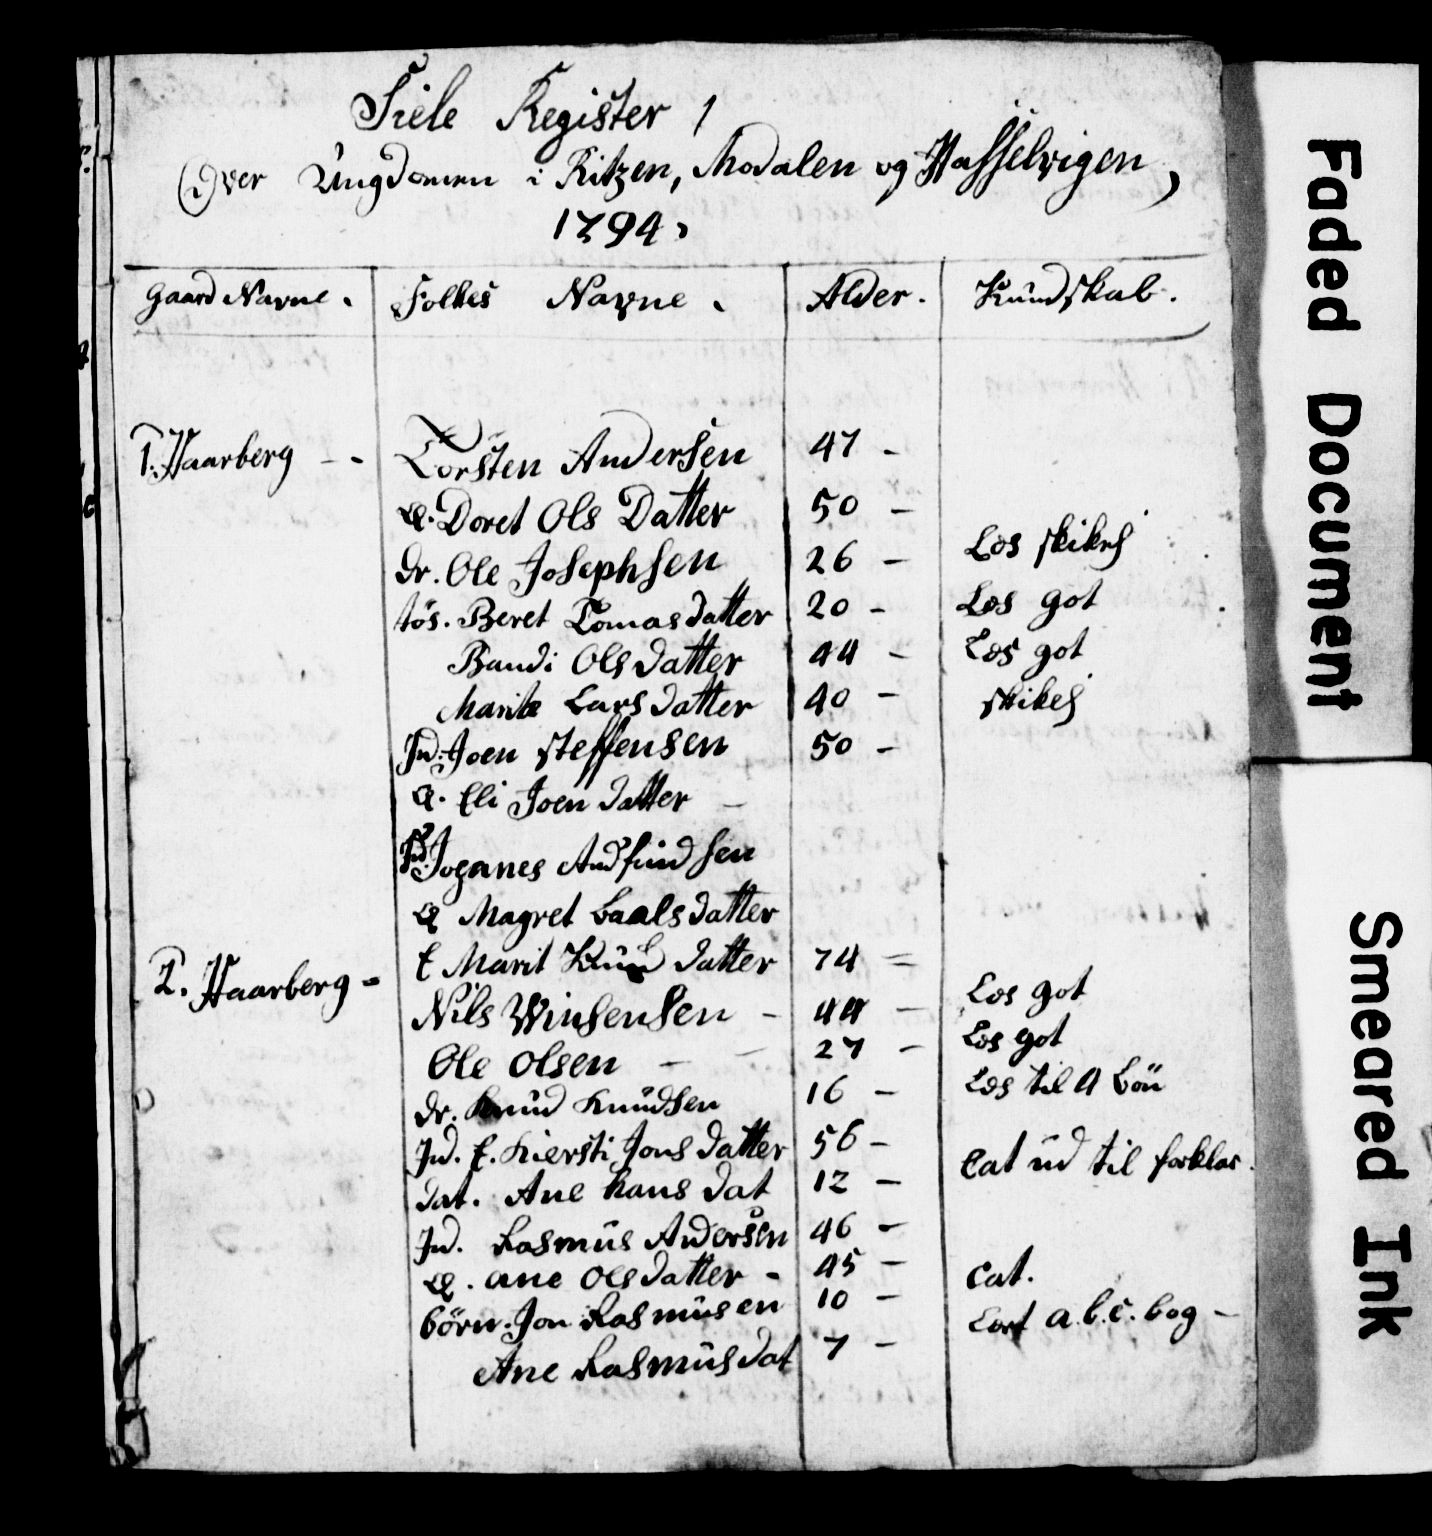 Siele Register 1
Over Ungdomen i Ritzen, Modalen og Hasselvigen,
1794,
Gaard Navne. Folkes Navne. Alder. Kundskab.
1. Haarberg - - Torsten Andersen 47 -
Q. Doret Ols Datter 50 -
dr. Ole Josephsen 26 - Læs skikel
tös. Beret Tomasdatter 20 - Læs got
Bandi Olsdatter 44 - Læs got
Marite Larsdatter 40 - skikel
Ind. Joen Steffensen 50 -
Q. Eli Joendatter -
Ind. Joganes Andfindsen
Q Magret Baalsdatter
E Marit Knud datter 74 =
2. Haarberg - Nils Winsensen - 44 - Læs got
Ole Olsen - - 27 - Læs got
dr. Knud Knudsen 16 - Læs til A Bön
Ind. E. Kiersti Jons datter 56 -
dat. Ane Hans dat 12 - Cat ud til forklar.
Ind. Rasmus Andersen 46 -
Q. Ane Olsdatter - 45 -
börn. Jon Rasmusen 10 - Cat.
Ane Rasmusdat 7 - Lært a.b.c. bog -
Faded Document
Smeared Ink